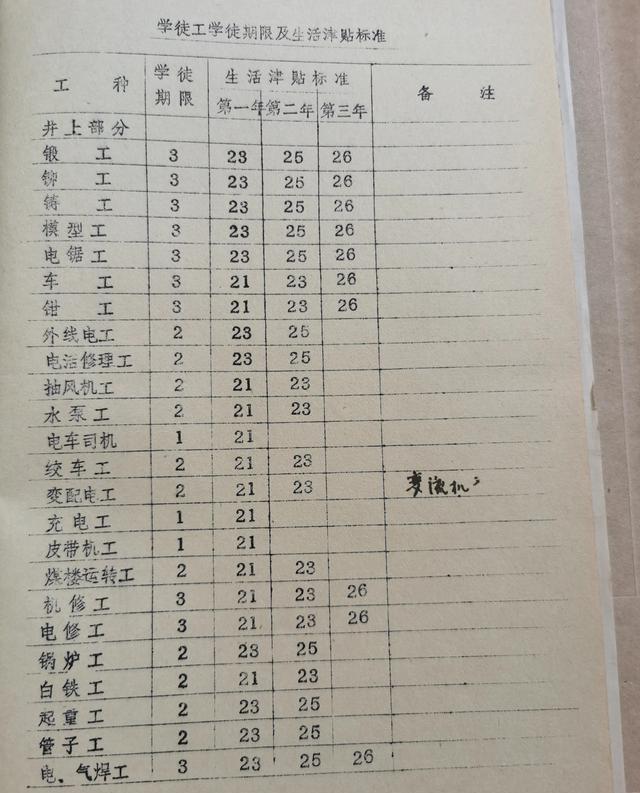 学徒工学徒期限及生活津贴标准
工种 学徒期限 生活津贴标准 备注
第一年 第二年 第三年
井上部分
锻工 3 23 25 26
铆工 3 23 25 26
铸工 3 23 25 26
模型工 3 23 25 26
电锯工 3 23 25 26
车工 3 21 23 26
钳工 3 21 23 26
外线电工 2 23 25
电活修理工 2 23 25
抽风机工 2 21 23
水泵工 2 21 23
电车司机 1 21
绞车工 2 21 23
变配电工 2 21 23 变流机
充电工 1 21
皮带机工 1 21
煤楼运转工 2 21 23
机修工 3 21 23 26
电修工 3 21 23 26
锅炉工 2 23 25
白铁工 2 21 23
起重工 2 23 25
管子工 2 23 25
电、气焊工 3 23 25 26